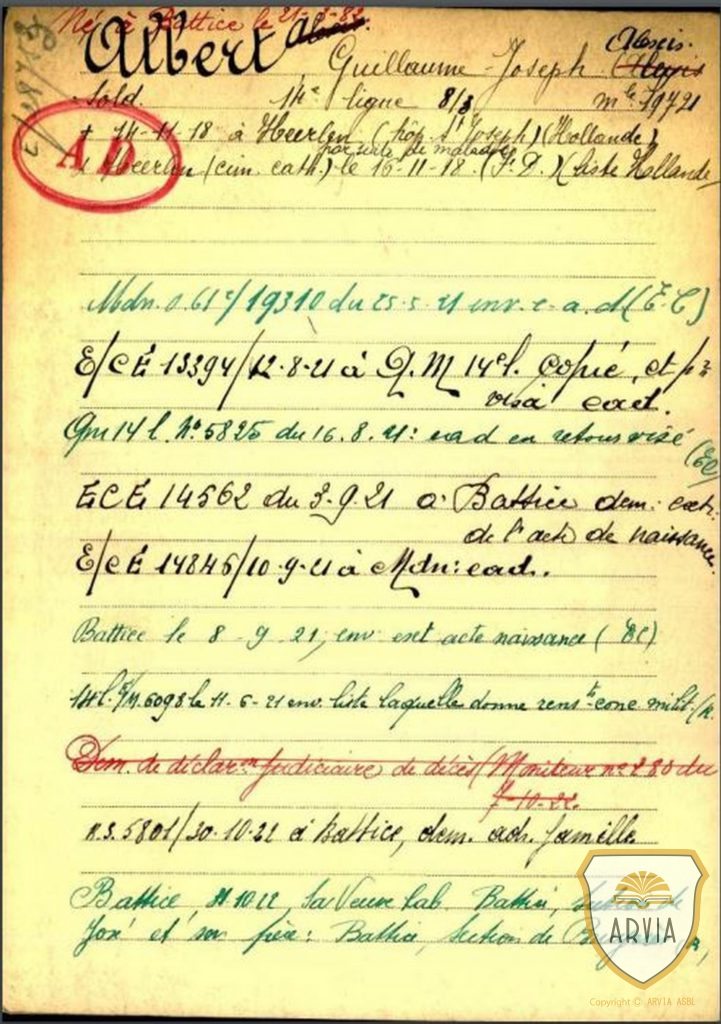 Né à Battice le 21-2-82
Albert Alexis
Guillaume-Joseph Alexis
Sold. 14e ligne 8/3 mle 19721
+ 14-11-18 à Heerlen (hôp. St Joseph) (Hollande)
par suite de maladie
Heerlen (cim. cath.) le 16-11-18. (F.D.) (liste Hollande
A D
Mdn. 0.61e/19310 du 25-5-21 env. e.a.d (E.C)
E/CE 13394/12-8-21 à Q.M 14e l. copié, et pr
visa ead.
Qm 14 l. No 5825 du 16.8.21: ead en retour visé
(EC)
ECE 14562 du 3-9-21 à Battice dem. extr.
de l'acte de naissance.
E/CE 14846/10-9-21 à Mdn: ead.
Battice le 8-9-21, env. ext acte naissance (EC)
14 l. 6098 le 11-6-21 env. liste laquelle donne renste conc. milit.
Dem. de déclaron judiciaire de décès (Moniteur no 280 du
7-10-22.
5801/30-10-22 à Battice, dem. adr. famille
Battice 10 22, Sa Veuve hab. Battice, section de
José et son père: Battice, section de
ARVIA
Copyright © ARVIA ASBL